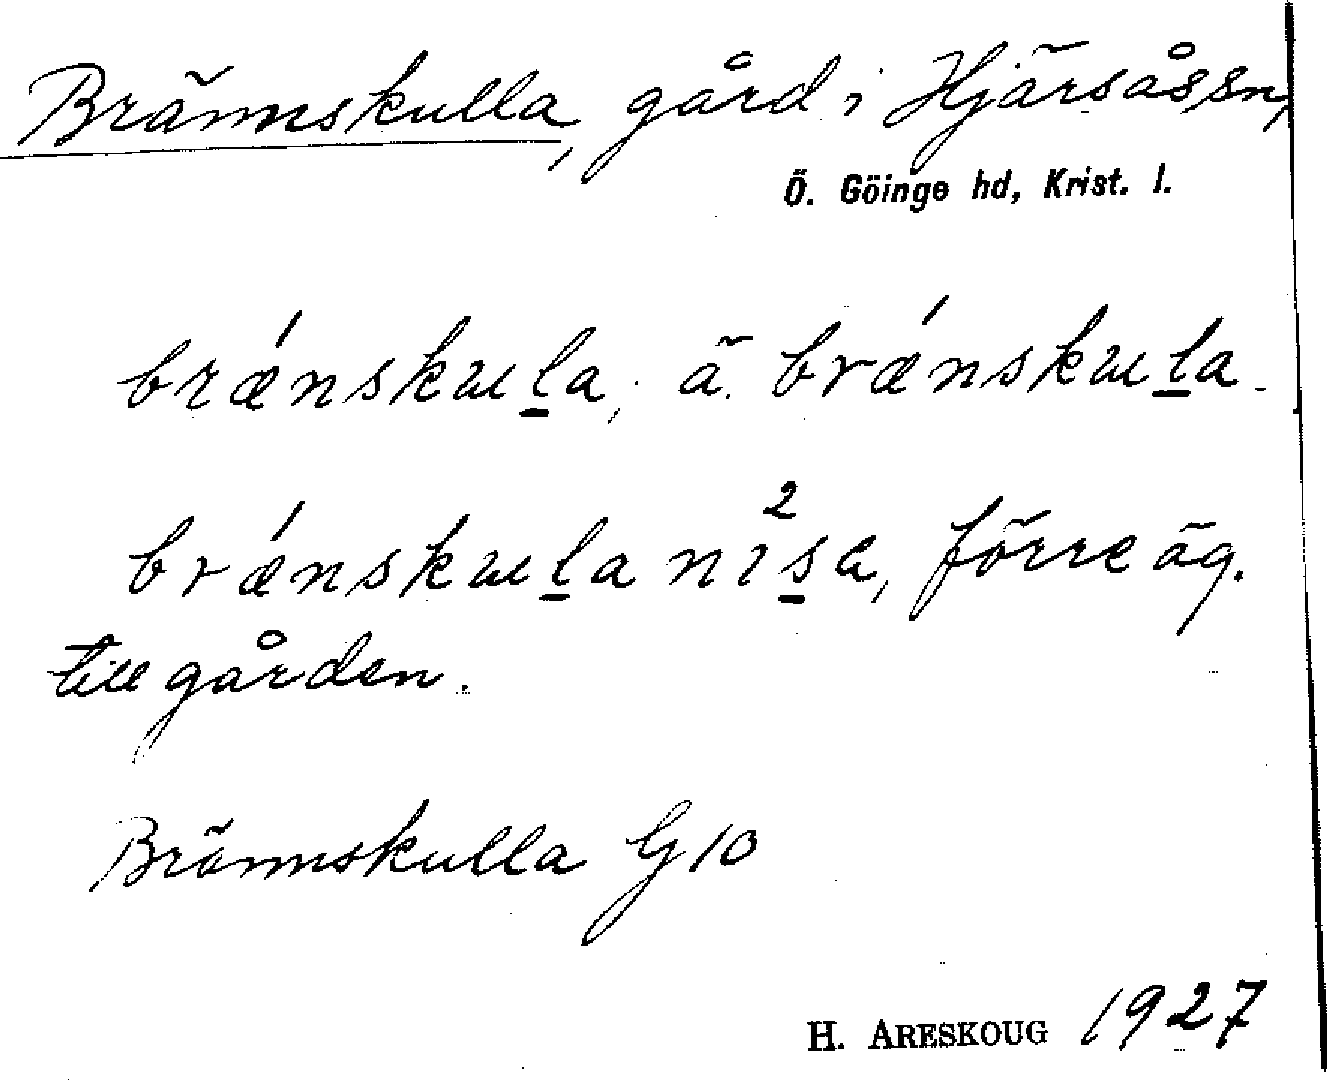 Brännskulla, gård i Hjärsås sn,
Ö. Göinge hd, Krist. l.
brǽnskuḻa, ä. brǽnskuḻa.
brǽnskuḻa ni²s̱a, förre äg.
till gården.
Brännskulla G10
H. ARESKOUG 1927